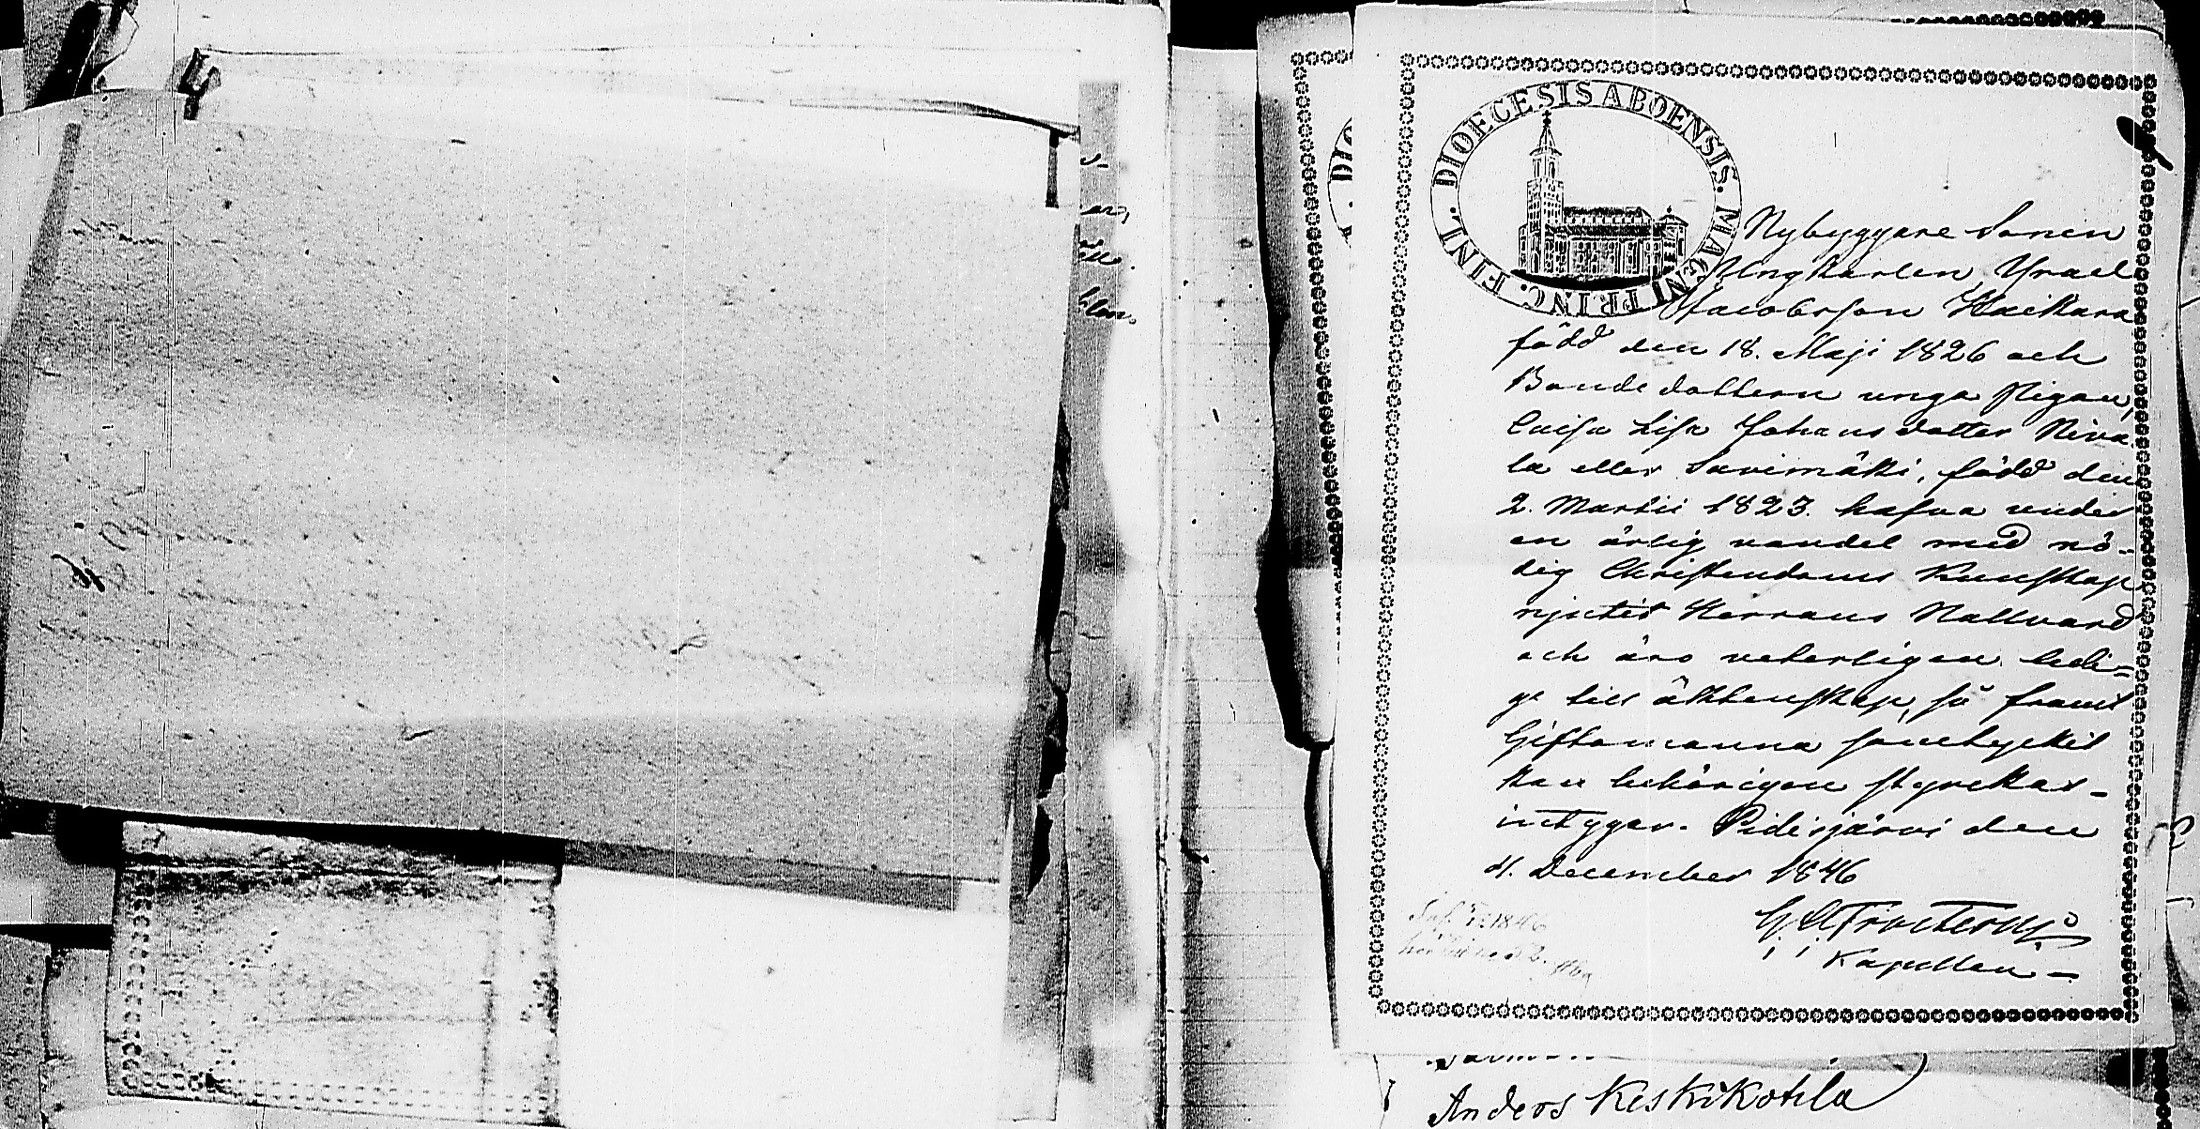 DIOECESIS ABOENSIS. MAGNI PRINC. FINL.
Nybyggare Sonen
Ungkarlen, Ysrael
Jacobsson Haikara
född den 18. Maji 1826 och
Bonde dottern unga Pigan,
Caisa Lisa Johansdotter Niva
la eller Savimäki, född den
2. Martii 1823. hafva under
en ärlig vandel med nö-
dig Christendoms Kunskap
njutit Herrans Nattvard
och äro veterligen ledi-
ge till äktenskap, så framt
Giftomanna samtycket
kan behörigen styrckas -
intygar. Pidisjärvi den
4. December 1846
Kapellan -
Anders Keskikotila